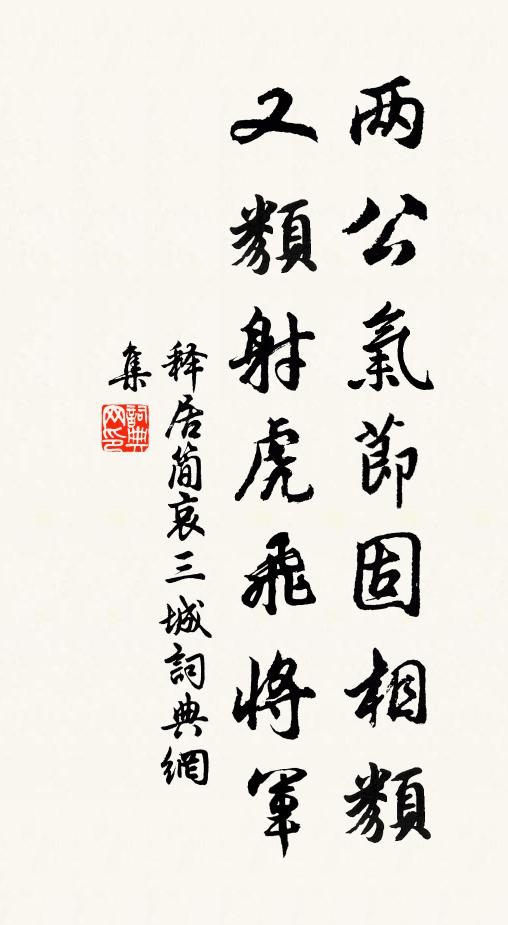 两公氣節固相類
又類射虎飛將軍
释居简哀三城詞典網
集
詞典网印